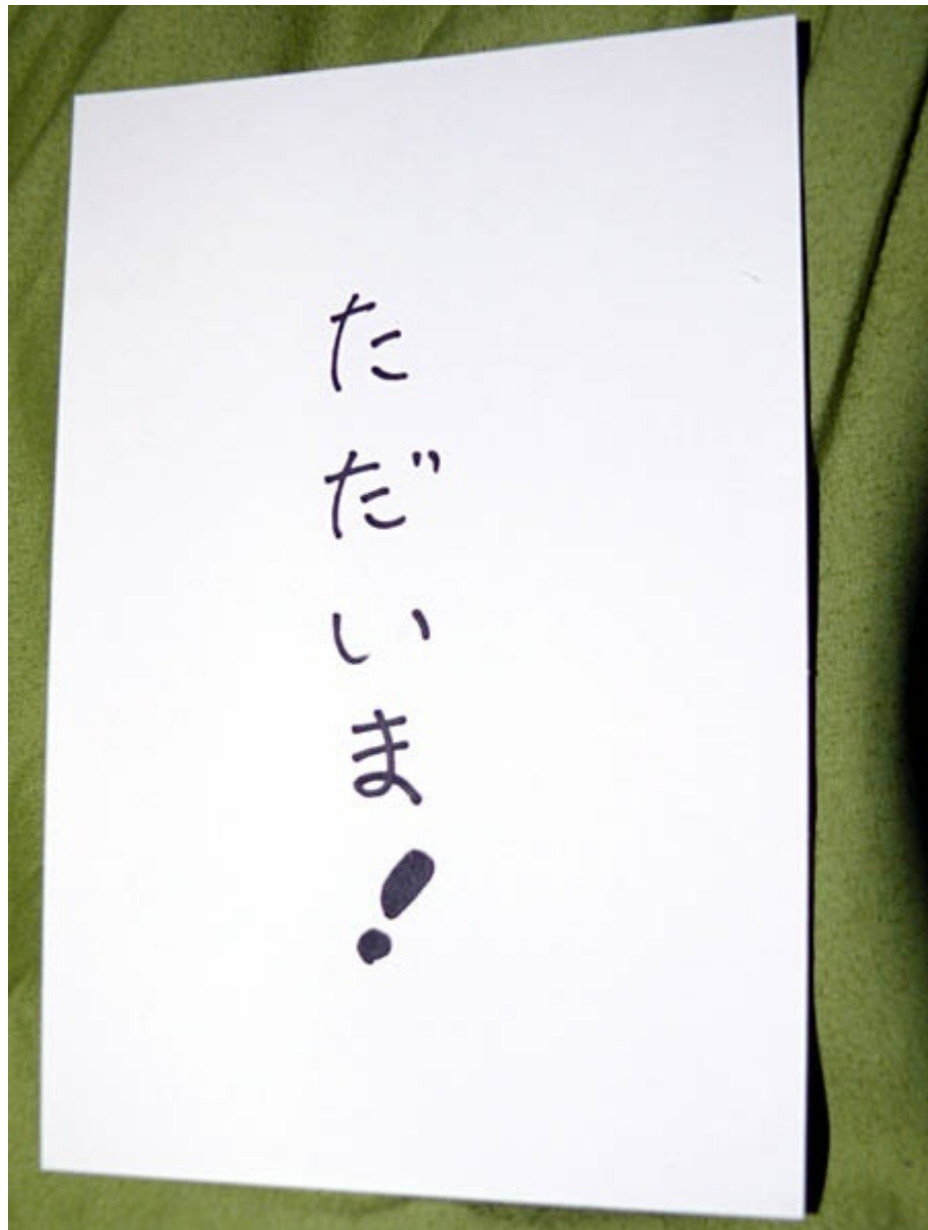 ただいま!